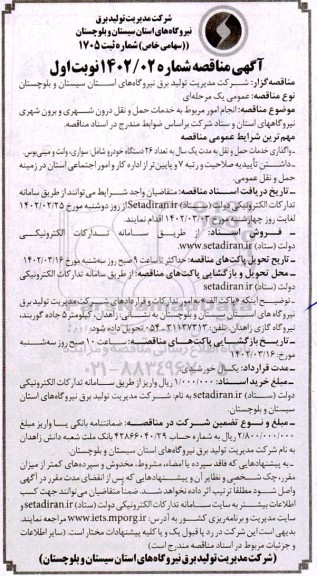 شرکت مدیریت تولید برق
نیروگاه‌های استان سیستان و بلوچستان
((سهامی خاص) شماره ثبت ۱۷۰۵
آگهی مناقصه شماره ۱۴۰۲/۰۲ نوبت اول
مناقصه‌گزار: شرکت مدیریت تولید برق نیروگاه‌های استان سیستان و بلوچستان
نوع مناقصه: عمومی یک مرحله‌ای
موضوع مناقصه: انجام امور مربوط به خدمات حمل و نقل درون شهری و برون شهری
نیروگاه‌های استان و ستاد شرکت براساس ضوابط مندرج در اسناد مناقصه.
مهم‌ترین شرایط عمومی مناقصه
ـ واگذاری خدمات حمل و نقل به مدت یک سال به تعداد ۲۶ دستگاه خودرو شامل: سواری، وانت و مینی‌بوس.
ـ داشتن تأییدیه صلاحیت و رتبه ۷ و پایین‌تر از اداره کار و امور اجتماعی استان در زمینه
حمل و نقل عمومی.
ـ تاریخ دریافت اسناد مناقصه: متقاضیان واجد شرایط می‌توانند از طریق سامانه
تدارکات الکترونیکی دولت (ستاد) Setadiran.ir از روز دوشنبه مورخ ۱۴۰۲/۰۲/۲۵
لغایت روز چهارشنبه مورخ ۱۴۰۲/۰۳/۰۳ اقدام نمایند.
ـ فروش اسناد: از طریق سامانه تدارکات الکترونیکی
دولت (ستاد) www.setadiran.ir
ـ تاریخ تحویل پاکت‌های مناقصه: حداکثر تا ساعت ۹ صبح روز سه‌شنبه مورخ ۱۴۰۲/۰۳/۱۶
ـ محل تحویل و بازگشایی پاکت‌های مناقصه: از طریق سامانه تدارکات الکترونیکی
دولت (ستاد) setadiran.ir
ـ توضیح اینکه «پاکت الف» به امور تدارکات و قراردادهای شرکت مدیریت تولید برق
نیروگاه های استان سیستان و بلوچستان به نشانی: زاهدان، کیلومتر ۵ جاده گوربند،
نیروگاه گازی زاهدان، تلفن: ۳۱۱۳۷۳۱۳-۰۵۴ تحویل داده شود.
ـ تاریخ بازگشایی پاکت‌های مناقصه: ساعت ۱۰ صبح روز سه‌شنبه
مورخ: ۱۴۰۲/۰۳/۱۶
ـ مدت قرارداد: یکسال خورشیدی.
ـ مبلغ خرید اسناد: ۱/۰۰۰/۰۰۰ ریال واریز از طریق سامانه تدارکات الکترونیکی
دولت (ستاد) setadiran.ir به نام: شرکت مدیریت تولید برق نیروگاه‌های استان
سیستان و بلوچستان.
ـ مبلغ و نوع تضمین شرکت در مناقصه: ضمانتنامه بانکی یا واریز مبلغ
۲/۸۰۰/۰۰۰/۰۰۰ ریال به شماره حساب ۴۲۸۶۶۰۴۰/۲۹ بانک ملت شعبه دانش زاهدان
به نام شرکت مدیریت تولید برق نیروگاه‌های استان سیستان و بلوچستان
ـ به پیشنهادهایی که فاقد سپرده یا امضاء، مشروط، مخدوش و سپرده‌های کمتر از میزان
مقرر، چک شخصی و نظایر آن و پیشنهادهایی که پس از انقضای مدت مقرر در آگهی
واصل شود مطلقا ترتیب اثر داده نخواهد شد. ضمناً متقاضیان می‌توانند جهت کسب
اطلاعات بیشتر به سایت سامانه تدارکات الکترونیکی دولت (ستاد) setadiran.ir و
سایت مدیریت و برنامه‌ریزی کشور به آدرس: www.iets.mporg.ir مراجعه نمایند.
بدیهی است این شرکت در رد یا قبول یک و یا کلیه پیشنهادات مختار است. (سایر اطلاعات
و جزئیات مربوط در اسناد مناقصه مندرج است)
(شرکت مدیریت تولید برق نیروگاه‌های استان سیستان و بلوچستان)